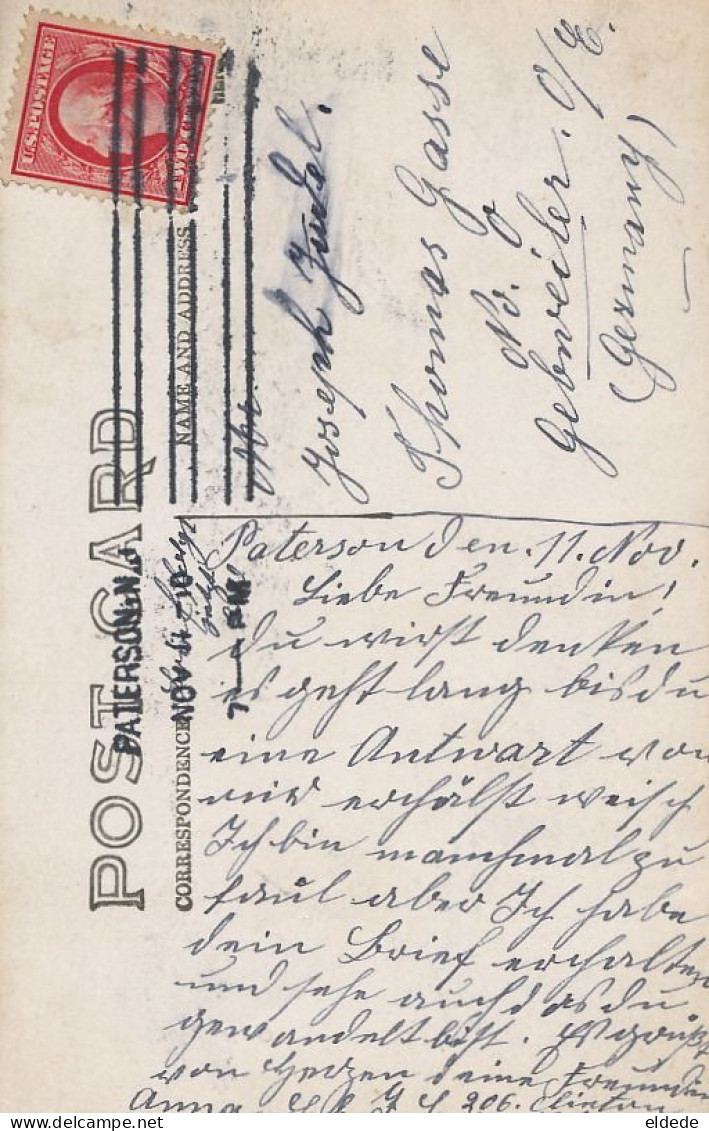 U.S. POSTAGE
POST CARD
PATERSON, N.J.
NOV 11
7 — PM
NAME AND ADDRESS
CORRESPONDENCE
Joseph
Thomas Gasse
No.
Gebweiler. O/E.
(Germany)
Paterson den. 11. Nov.
Liebe Freundin!
du wirst denken
es geht lang bis du
eine Antwort von
mir erhälst weisch
Ich bin manchmal zu
faul aber Ich habe
dein Brief erchalten
und sehe auch das du
gewandelt bist. Es grüßt
von Herzen deine Freundin
Anna 206. Clinton
eldede